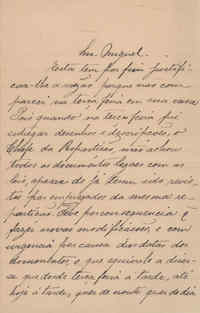 Snr. Miguel.
Esta tem por fim justifi-
car-lhe a razão porque não com-
pareci na terça feira em sua casa
Pois quando na terça feira fui
entregar desenhos e descripções, o
Chefe da Repartição, não achou
todos os documentos legaes com as
leis, apezar de já terem sido revis-
tos por empregados da mesma re-
partição. Tive por consequencia q
fazer novas modificações, e com
urgencia por causa das datas dos
documentos, o que equivale a dizer
se que desde terça feira a tarde, até
hoje á tarde, quer de noute quer de dia